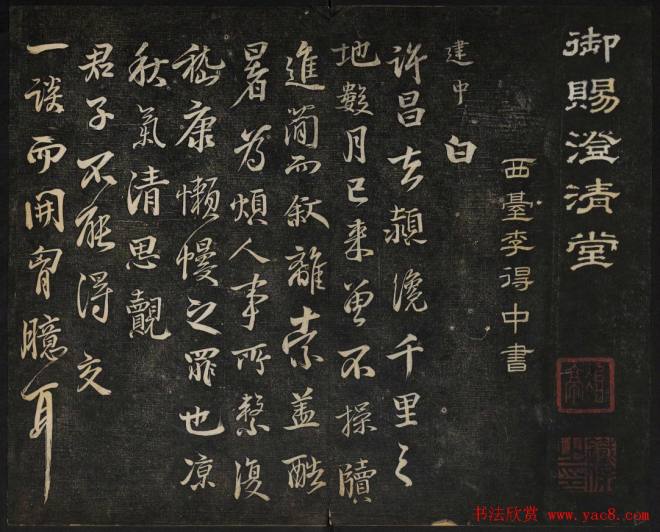 御賜澄清堂
西臺李得中書
建中白
許昌去潁纔千里之
地數月已來曾不操牘
進簡而敘離索蓋酷
暑為煩人事所繫復
嵇康懶慢之罪也凉
秋氣清思覿
君子不能得交
一談而開胷臆耳
书法欣赏 www.yac8.com